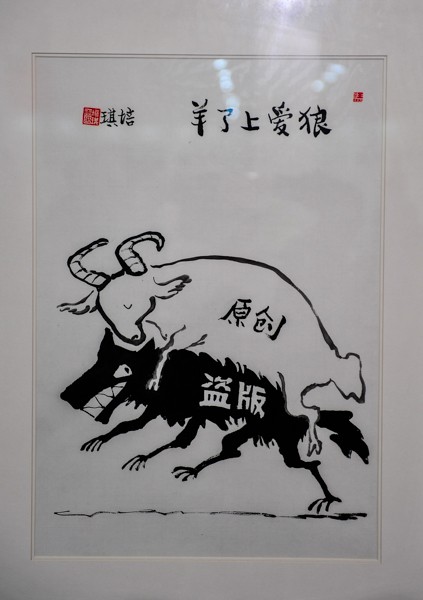 狼爱上了羊
培琪
原创
盗版